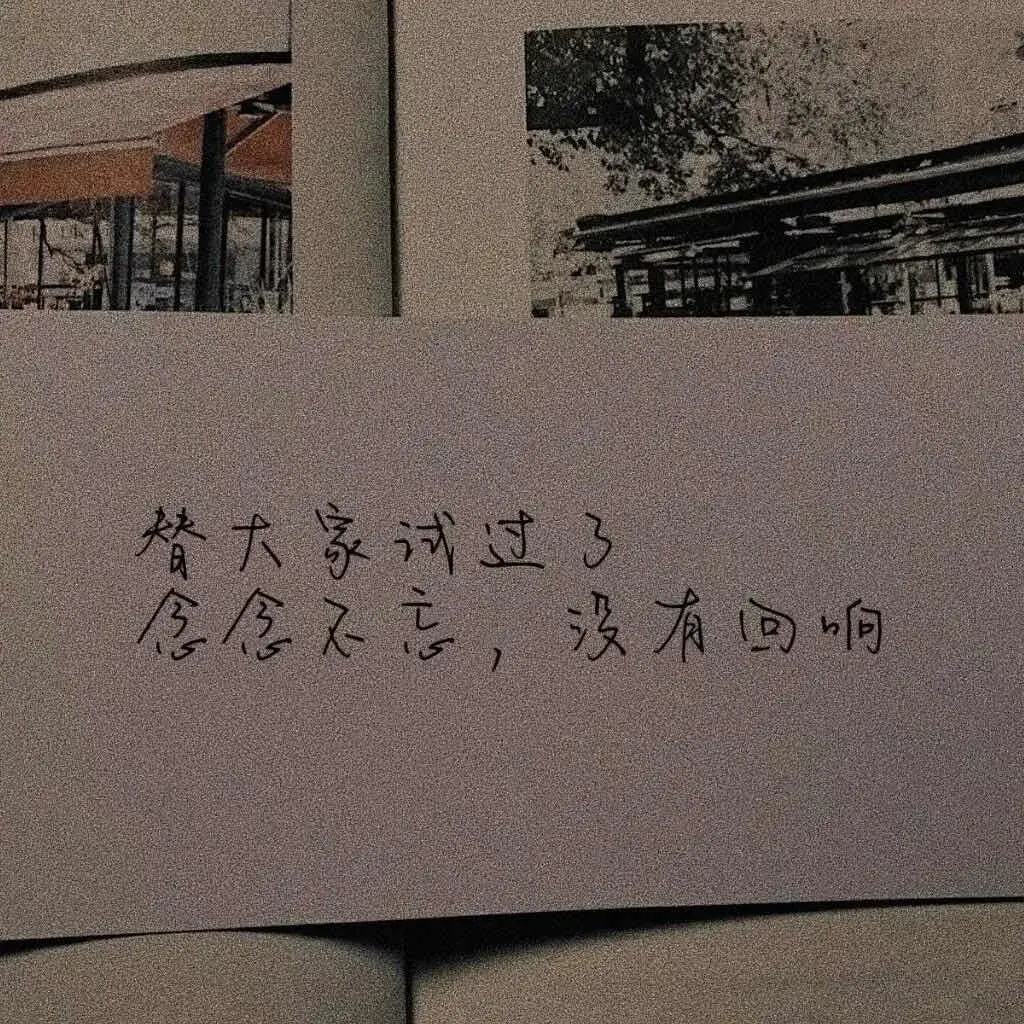 替大家试过了
念念不忘，没有回响